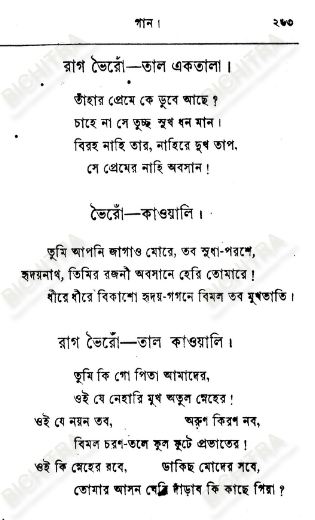 গান।
২৬৩
রাগ ভৈরোঁ—তাল একতালা।
তাঁহার প্রেমে কে ডুবে আছে ?
চাহে না সে তুচ্ছ সুখ ধন মান।
বিরহ নাহি তার, নাহিরে দুখ তাপ,
সে প্রেমের নাহি অবসান !
ভৈরোঁ—কাওয়ালি।
তুমি আপনি জাগাও মোরে, তব সুধা-পরশে,
হৃদয়নাথ, তিমির রজনী অবসানে হেরি তোমারে !
ধীরে ধীরে বিকাশো হৃদয়-গগনে বিমল তব মুখভাতি।
রাগ ভৈরোঁ—তাল কাওয়ালি।
তুমি কি গো পিতা আমাদের,
ওই যে নেহারি মুখ অতুল স্নেহের !
ওই যে নয়ন তব, অরুণ কিরণ নব,
বিমল চরণ-তলে ফুল ফুটে প্রভাতের !
ওই কি স্নেহের রবে, ডাকিছ মোদের সবে,
তোমার আসন ঘেরি দাঁড়াব কি কাছে গিয়া ?
BICHITRA